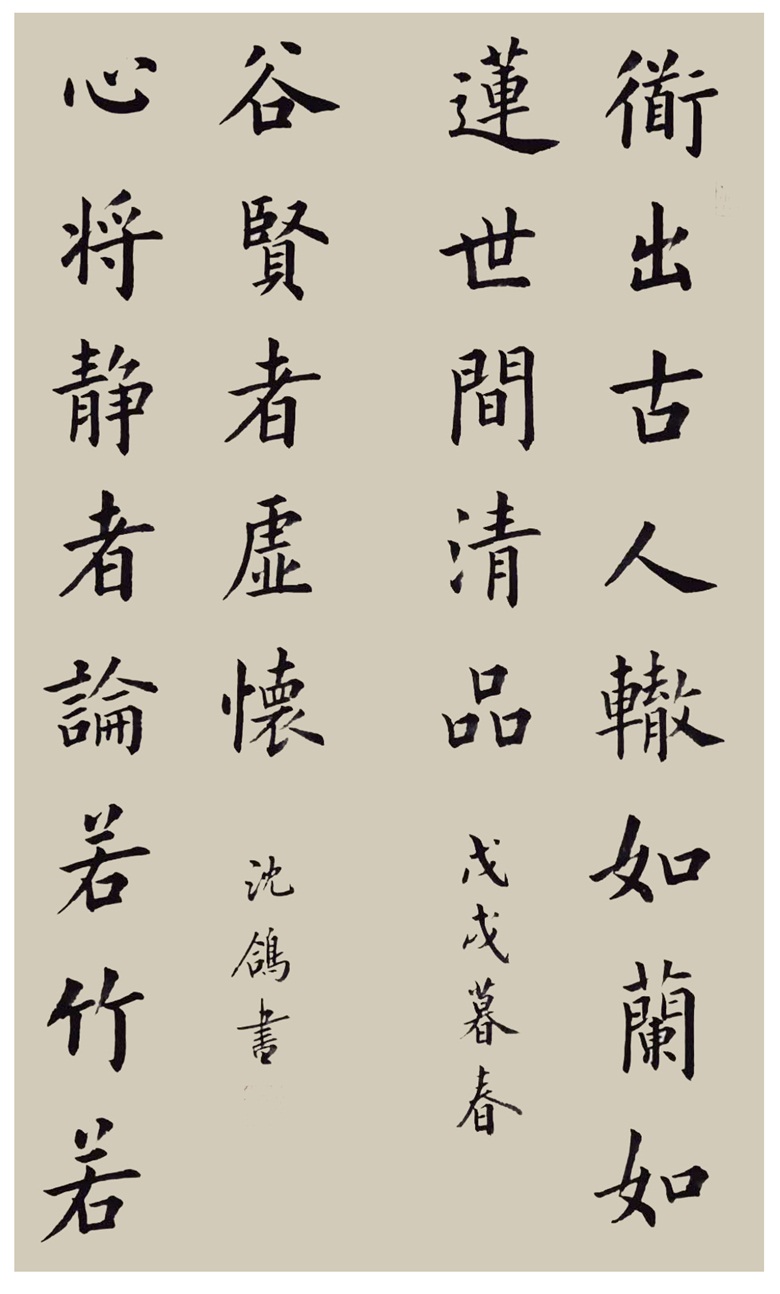 衜出古人轍如蘭如
蓮世間清品 戊戌暮春
心将静者論若竹若
谷賢者虚懷 沈鴿書